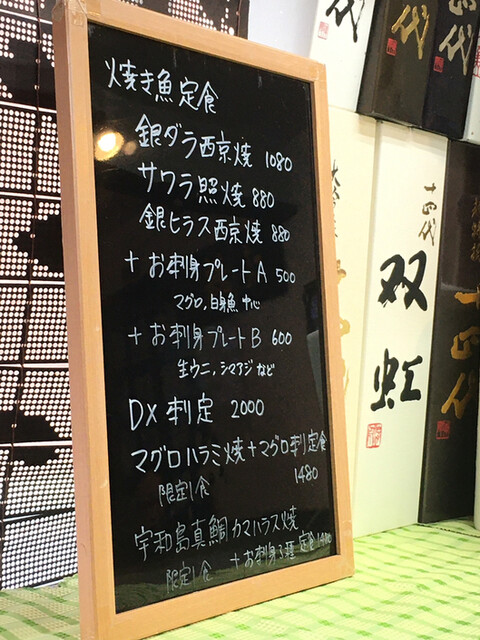 焼き魚定食
銀ダラ西京焼 1080
サワラ照焼 880
銀ヒラス西京焼 880
+お刺身プレートA 500
マグロ,白身魚中心
+お刺身プレートB 600
生ウニ,シマアジなど
DX刺定 2000
マグロハラミ焼+マグロ刺定食
限定1食 1480
宇和島真鯛カマハラス焼
限定1食 +お刺身3種定食1480
十四代
双虹
十四代